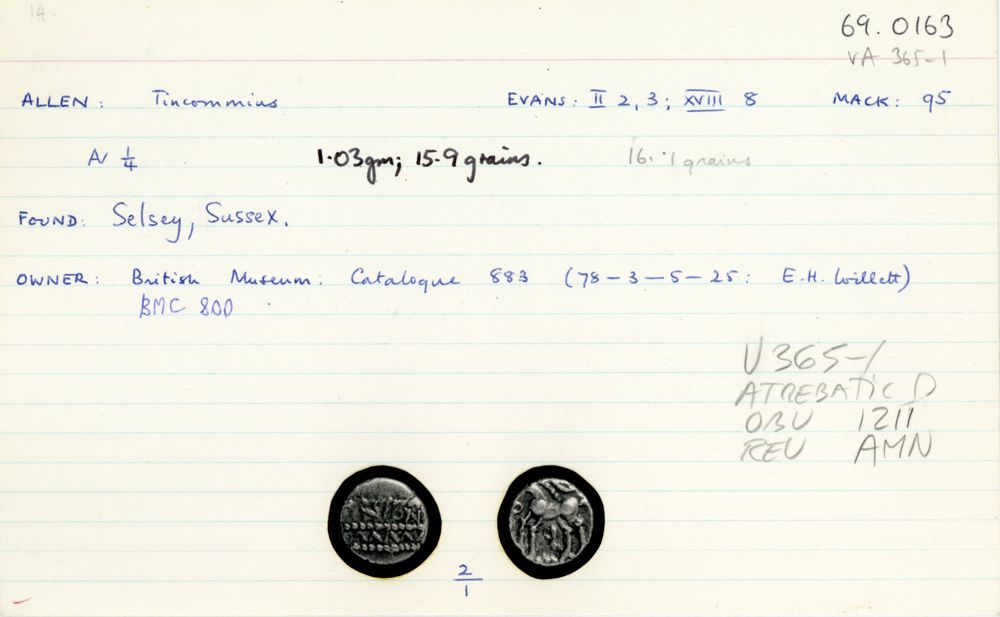 14.
69.0163
VA 365-1
ALLEN: Tincommius EVANS: II 2, 3; XVIII 8 MACK: 95
1/4 1.03gm; 15.9 grains. grains
FOUND: Selsey, Sussex.
OWNER: British Museum: Catalogue 883 (78-3-5-25: E.H. Willett)
BMC 800
V 365-1
ATREBATIC D
OBV 1211
REV AMN
2/1